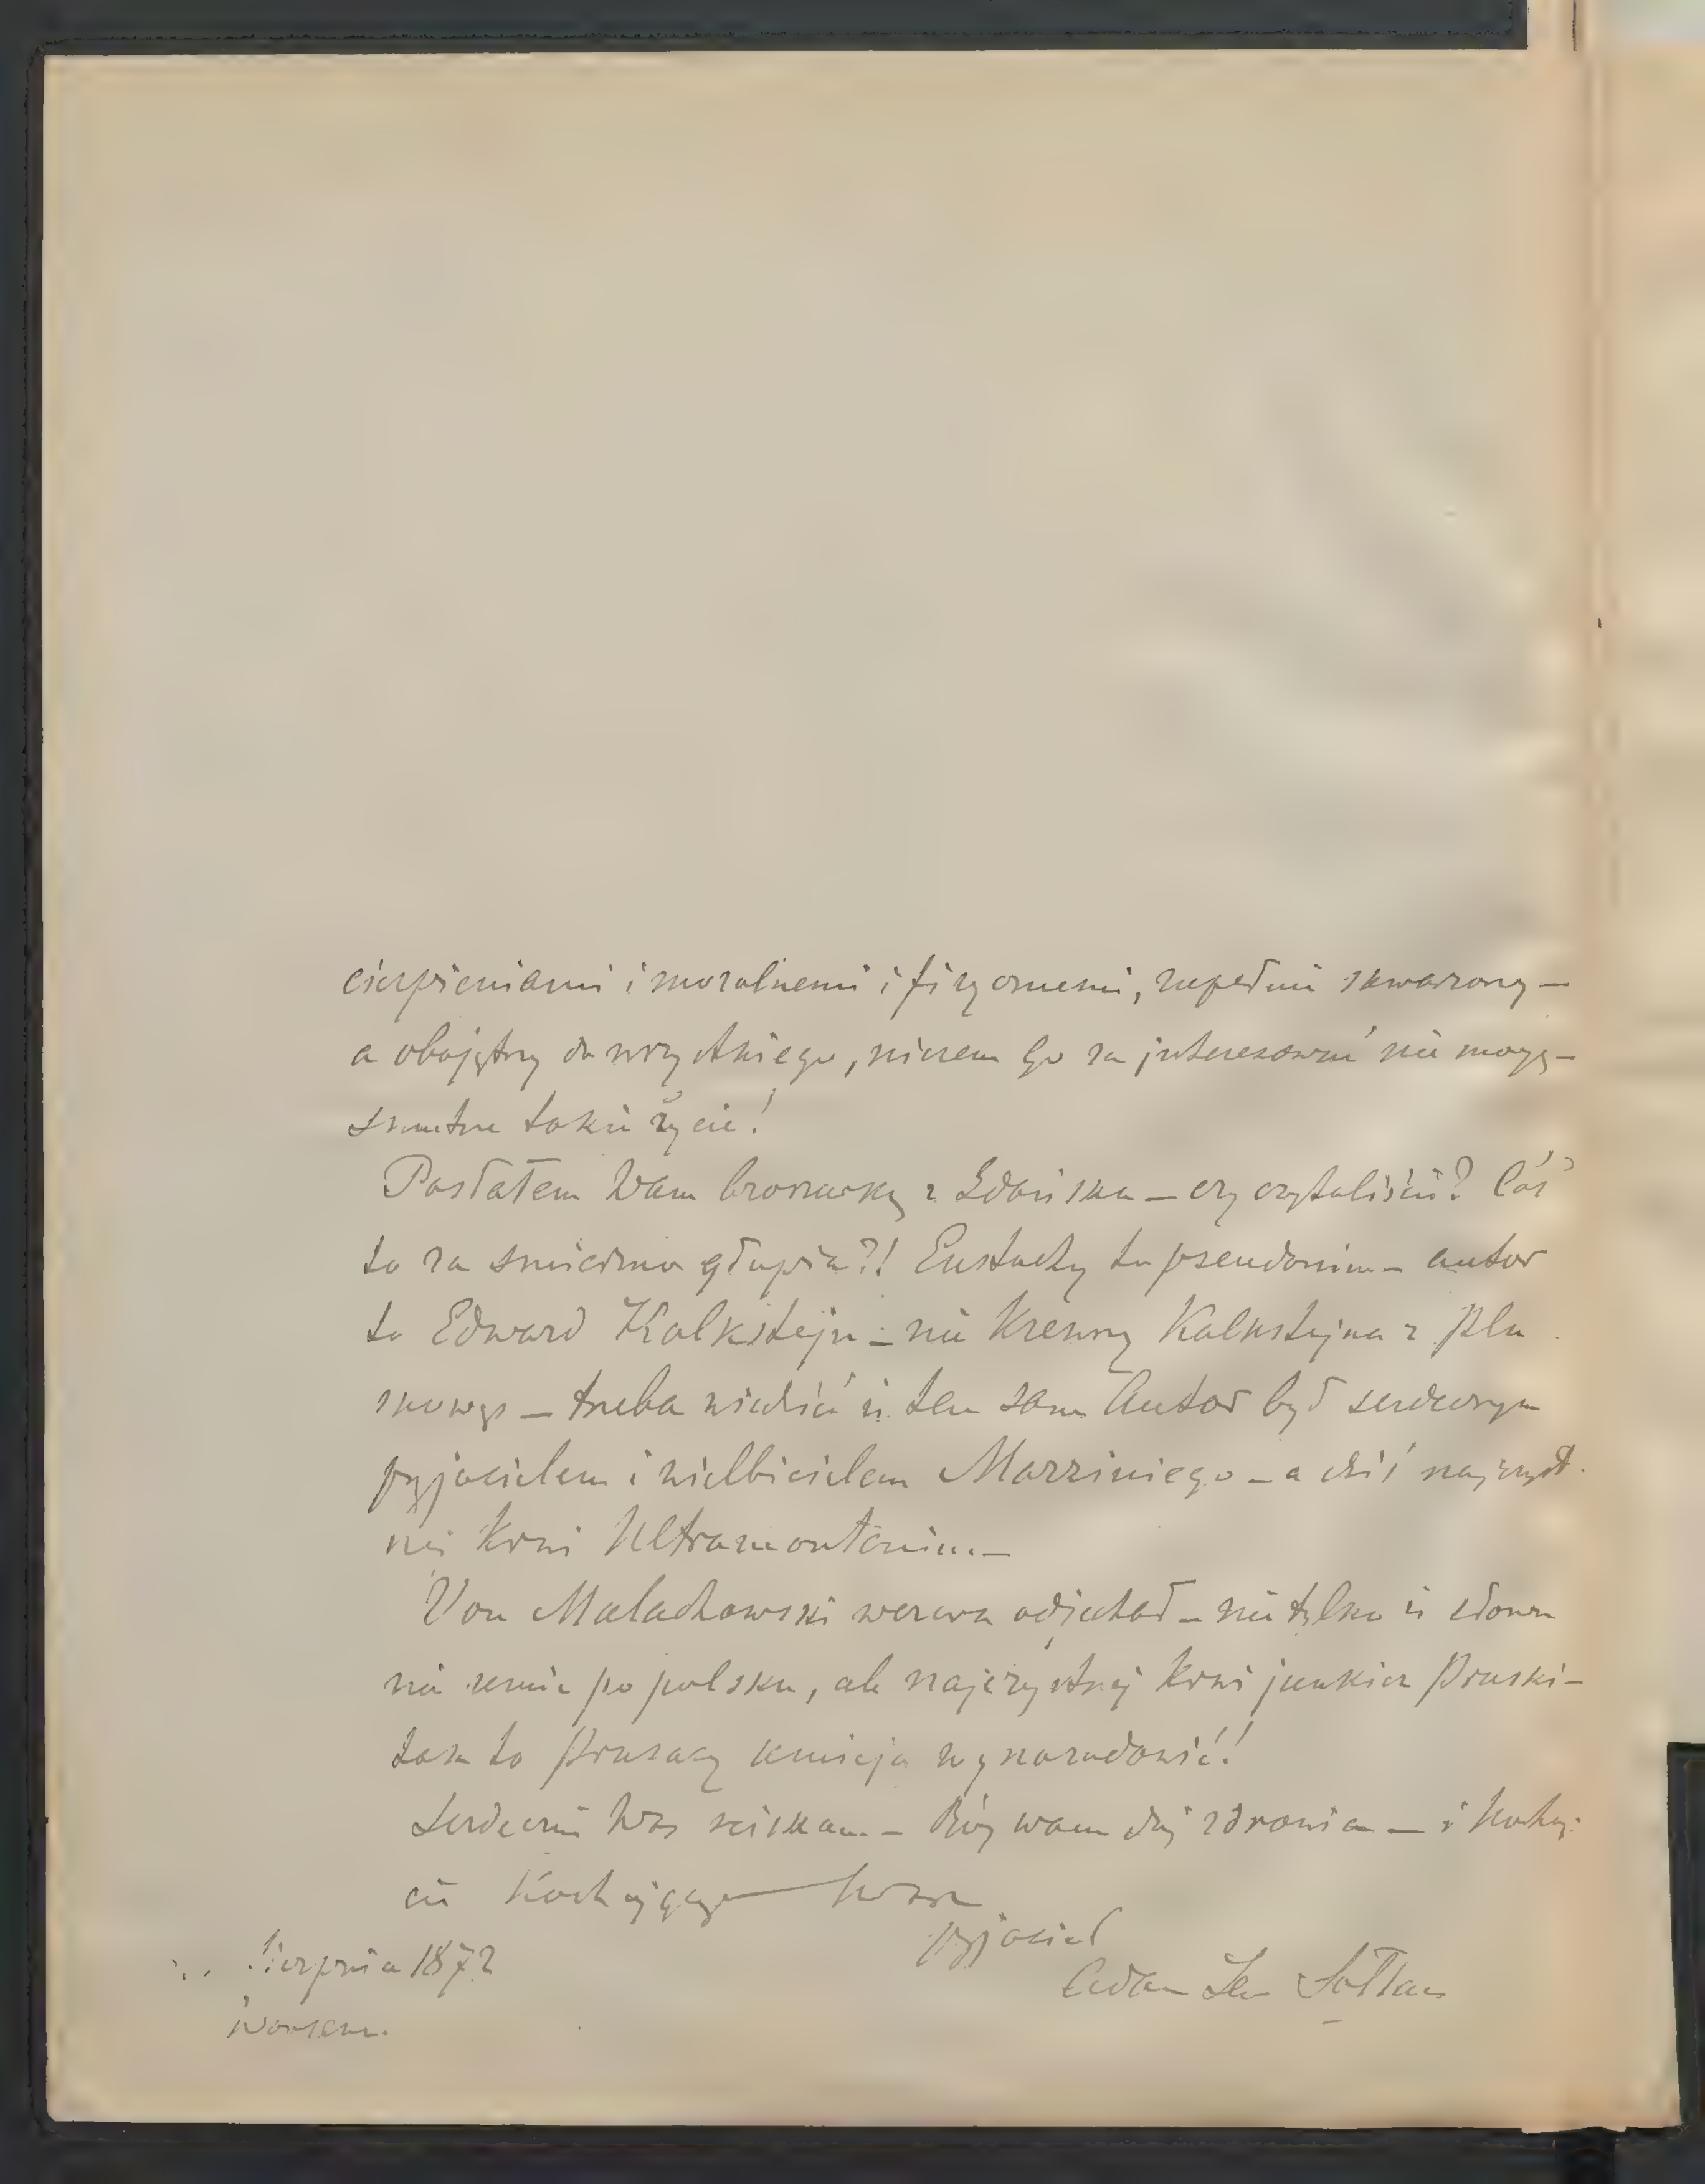 cierpieniami i moralnemi i fizycznemi, zupełnie skwaszony —
a obojętny do wszystkiego, niczem go za interesować nie mogę —
smutne takie życie!
Posłałem Wam broszurkę z Gdańska — czy czytaliście? Cóś
to za śmieszna głupia?! Eustachy to pseudonim — autor
to Edward Kalkstejn — nie krewny Kalkstejna z Plu
skowęs — trzeba wiedzieć iż ten sam Autor był serdecznym
przyjacielem i wielbicielem Mazziniego — a dziś najczyst
nej krwi Ultramontanin. —
Von Malachowski wczora odjechał — nie tylko iż słowa
nie umie po polsku, ale najczystszej krwi junkier pruski —
tak to Prusacy umieją wynarodowić!
Serdecznie Was ściskam — Bóg wam daj zdrowia — i kochaj-
cie kochającego Was
przyjaciel
Adam Lew Sołtan
Sierpnia 1872